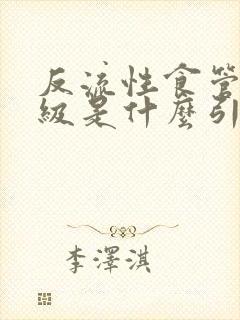 反流性食管
級是什麼引
李澤淇